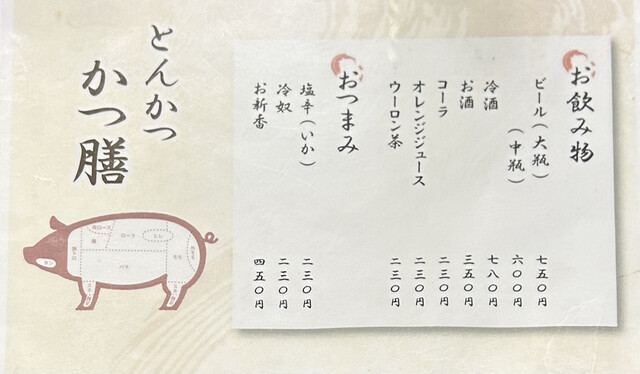 お飲み物
ビール（大瓶） 七五〇円
（中瓶） 六〇〇円
冷酒 七八〇円
お酒 三五〇円
コーラ 二三〇円
オレンジジュース 二三〇円
ウーロン茶 二三〇円
おつまみ
塩辛（いか） 二三〇円
冷奴 二三〇円
お新香 四五〇円
とんかつ
かつ膳
肩ロース
ロース
ヒレ
バラ
モモ
タン